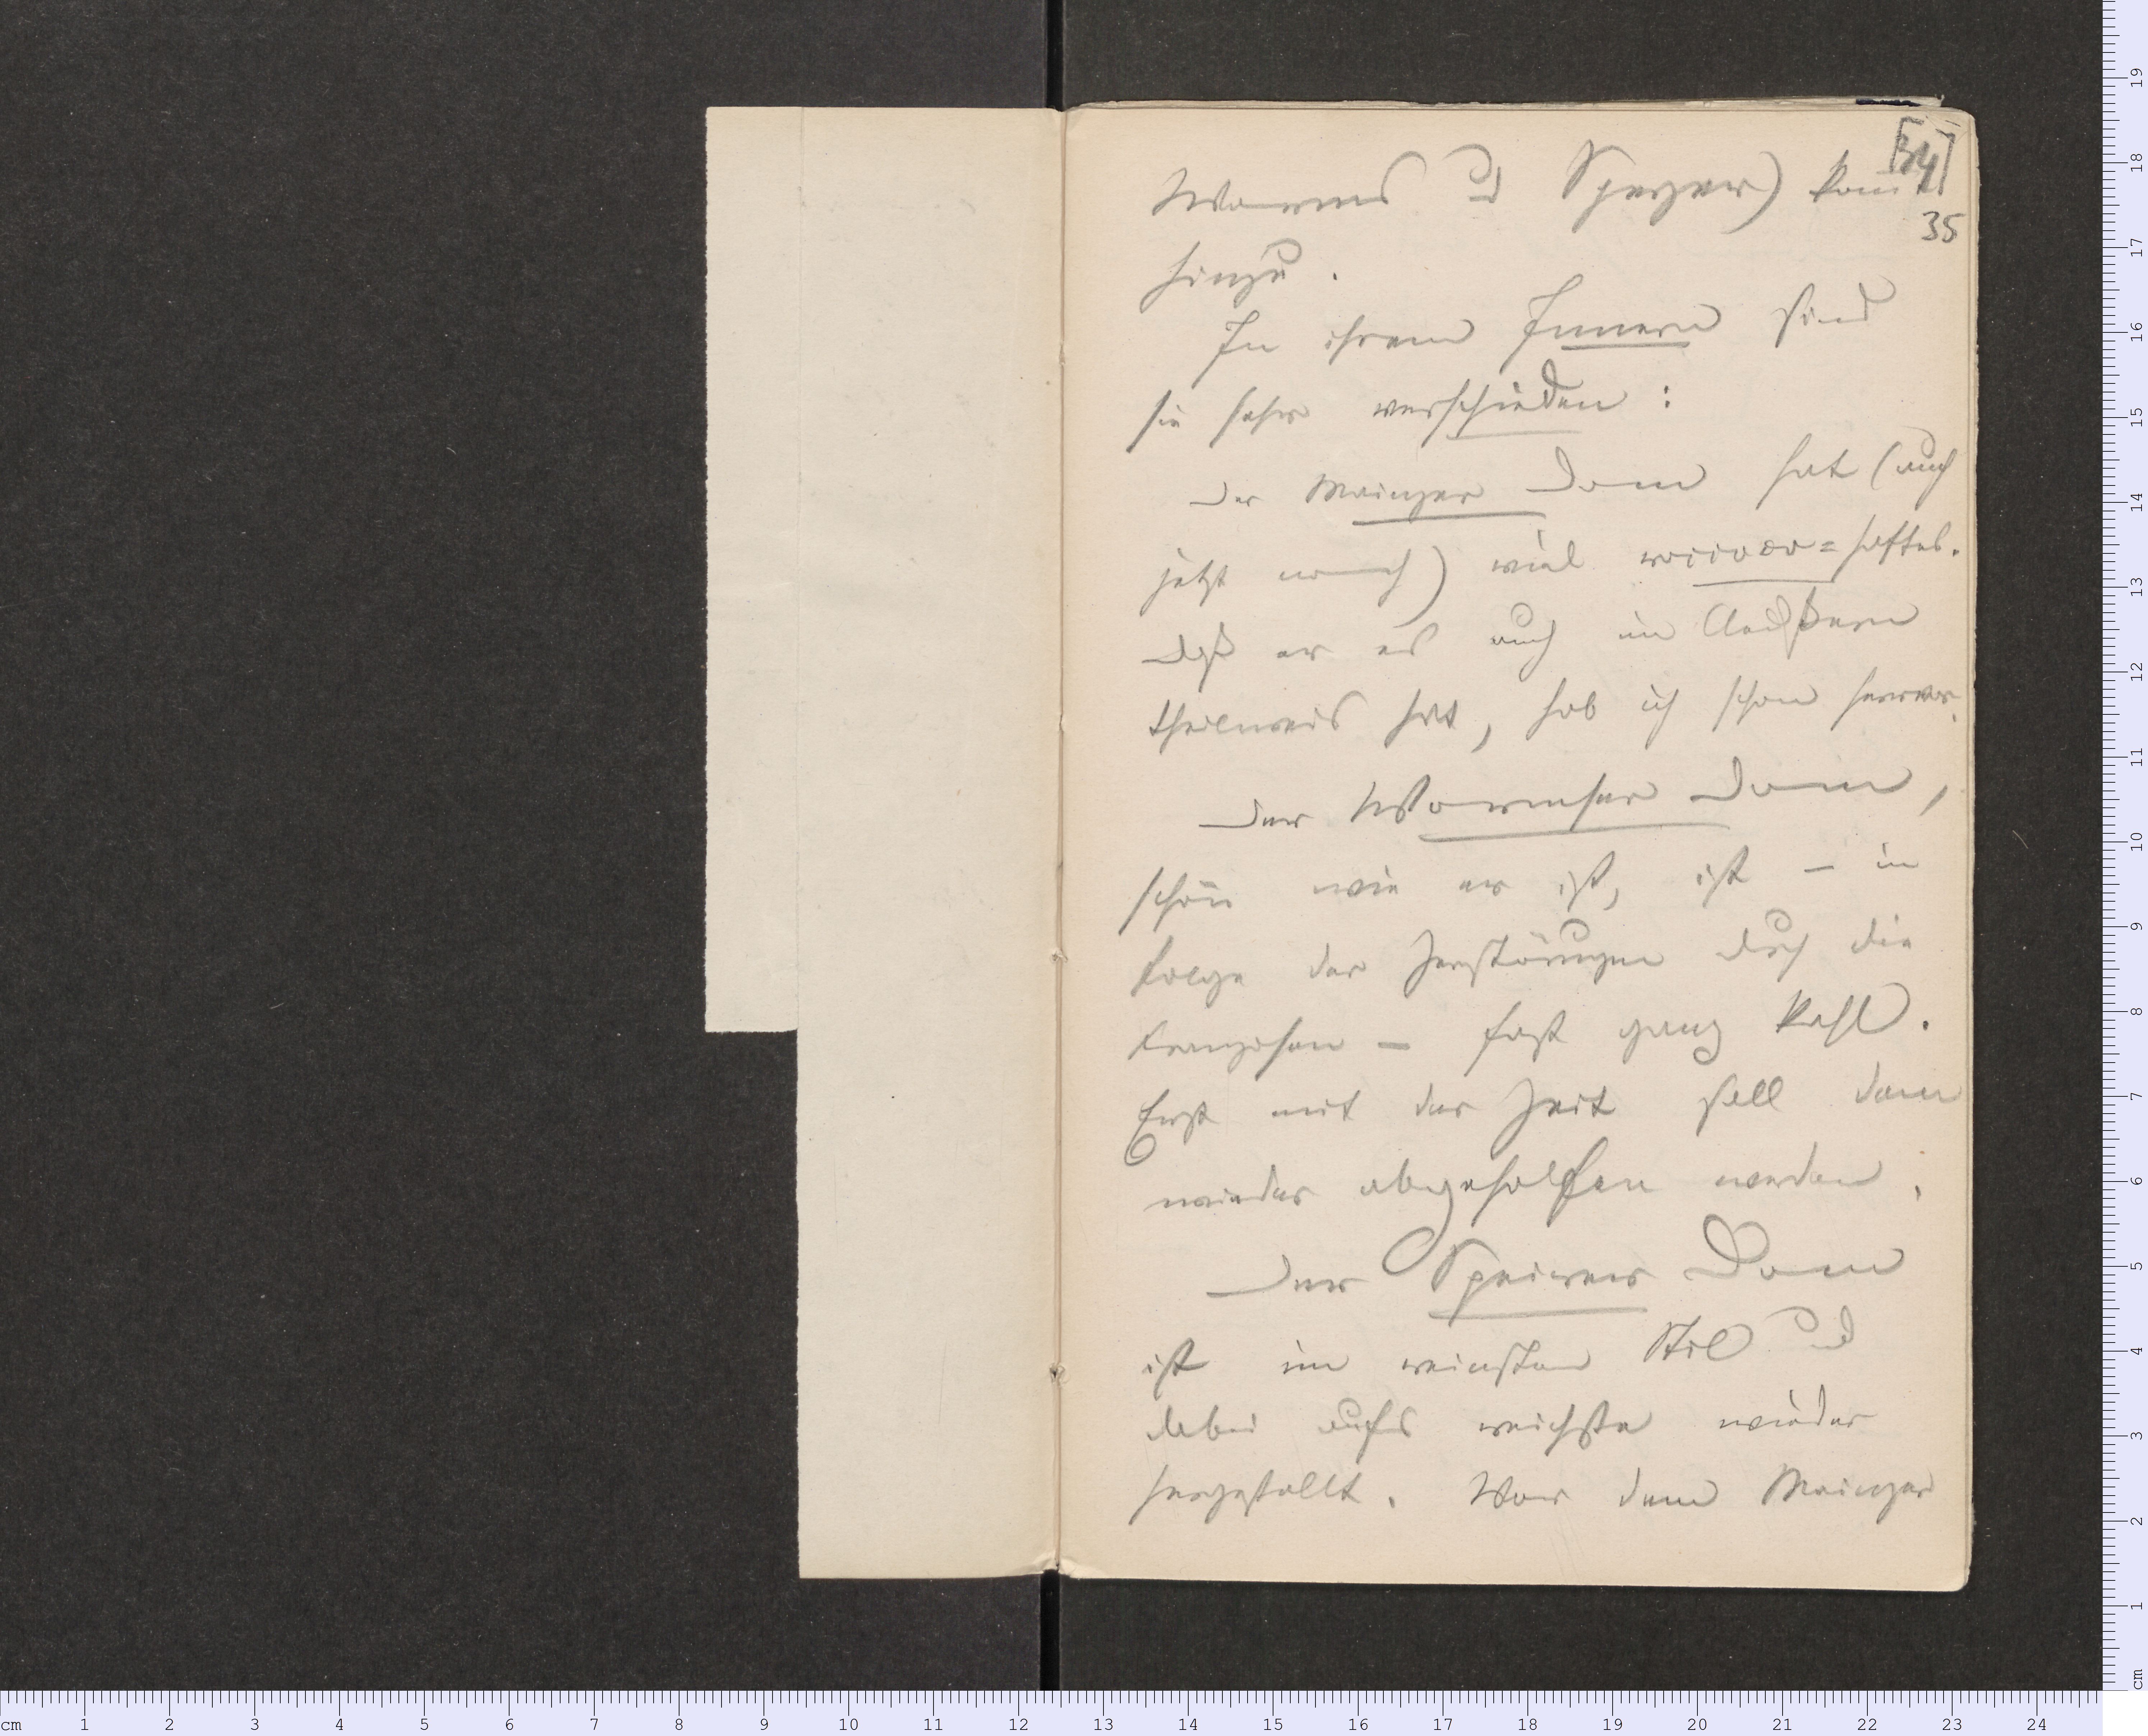 [34]
35
Worms u Speyer) kom̄
hinzu.
In ihrem Innern sind
sie sehr verschieden:
Der Mainzer Dom hat (auch
jetzt noch) viel rococo=haftes.
Daß er es auch im Aeußern
theilweis hat, hob ich schon hervor.
Der Wormser Dom,
schön wie er ist, ist – in
Folge der Zerstörungen durch die
Franzosen – fast ganz kahl.
Erst mit der Zeit soll dem
wieder abgeholfen werden.
Der Speirer Dom
ist im reinsten Stil und
dabei aufs reichste wieder
hergestellt. Vor dem Mainzer